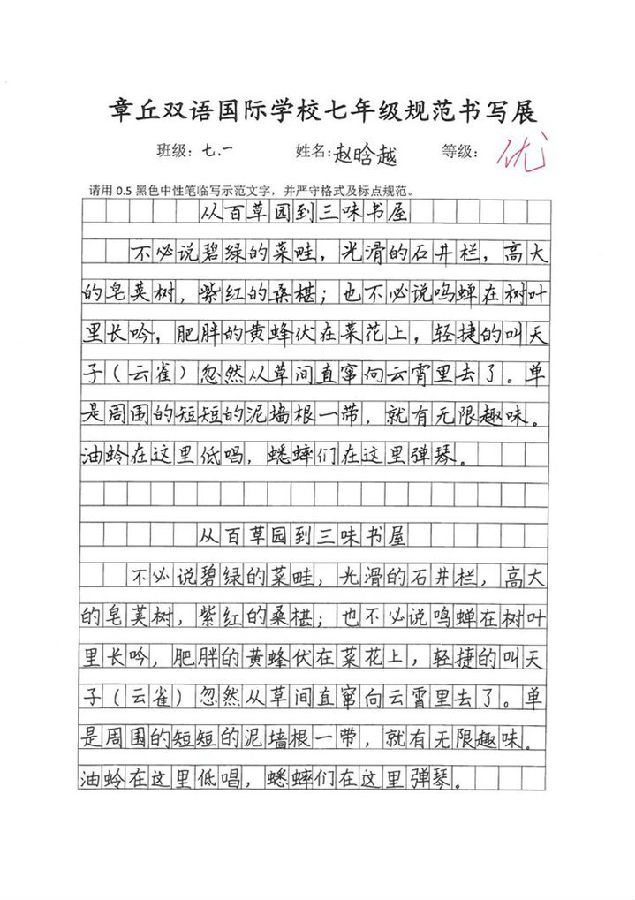 章丘双语国际学校七年级规范书写展
班级：七.一 姓名：赵晗越 等级：优
请用 0.5 黑色中性笔临写示范文字，并严守格式及标点规范。
从百草园到三味书屋
不必说碧绿的菜畦，光滑的石井栏，高大
的皂荚树，紫红的桑椹；也不必说鸣蝉在树叶
里长吟，肥胖的黄蜂伏在菜花上，轻捷的叫天
子（云雀）忽然从草间直窜向云霄里去了。单
是周围的短短的泥墙根一带，就有无限趣味。
油蛉在这里低唱，蟋蟀们在这里弹琴。
从百草园到三味书屋
不必说碧绿的菜畦，光滑的石井栏，高大
的皂荚树，紫红的桑椹；也不必说鸣蝉在树叶
里长吟，肥胖的黄蜂伏在菜花上，轻捷的叫天
子（云雀）忽然从草间直窜向云霄里去了。单
是周围的短短的泥墙根一带，就有无限趣味。
油蛉在这里低唱，蟋蟀们在这里弹琴。